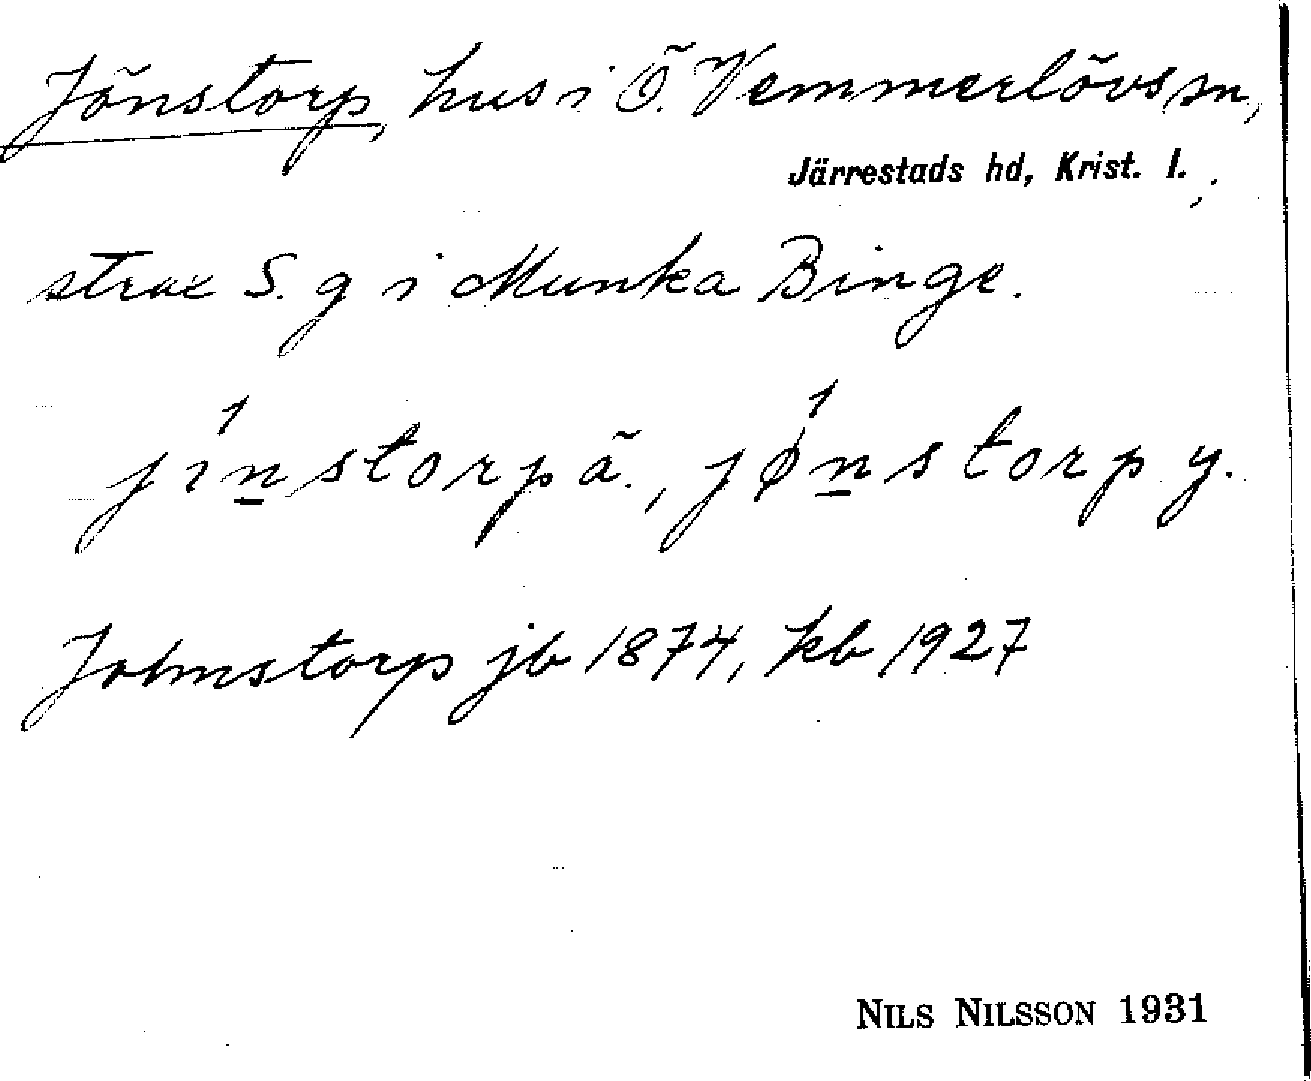 Jönstorp, hus i Ö. Vemmerlövs sn,
Järrestads hd, Krist. l.,
strax S. g i Munka Binge.
jı́n̲storp ä., jǿn̲storp y.
Johnstorp jb 1874, kb 1927
NILS NILSSON 1931